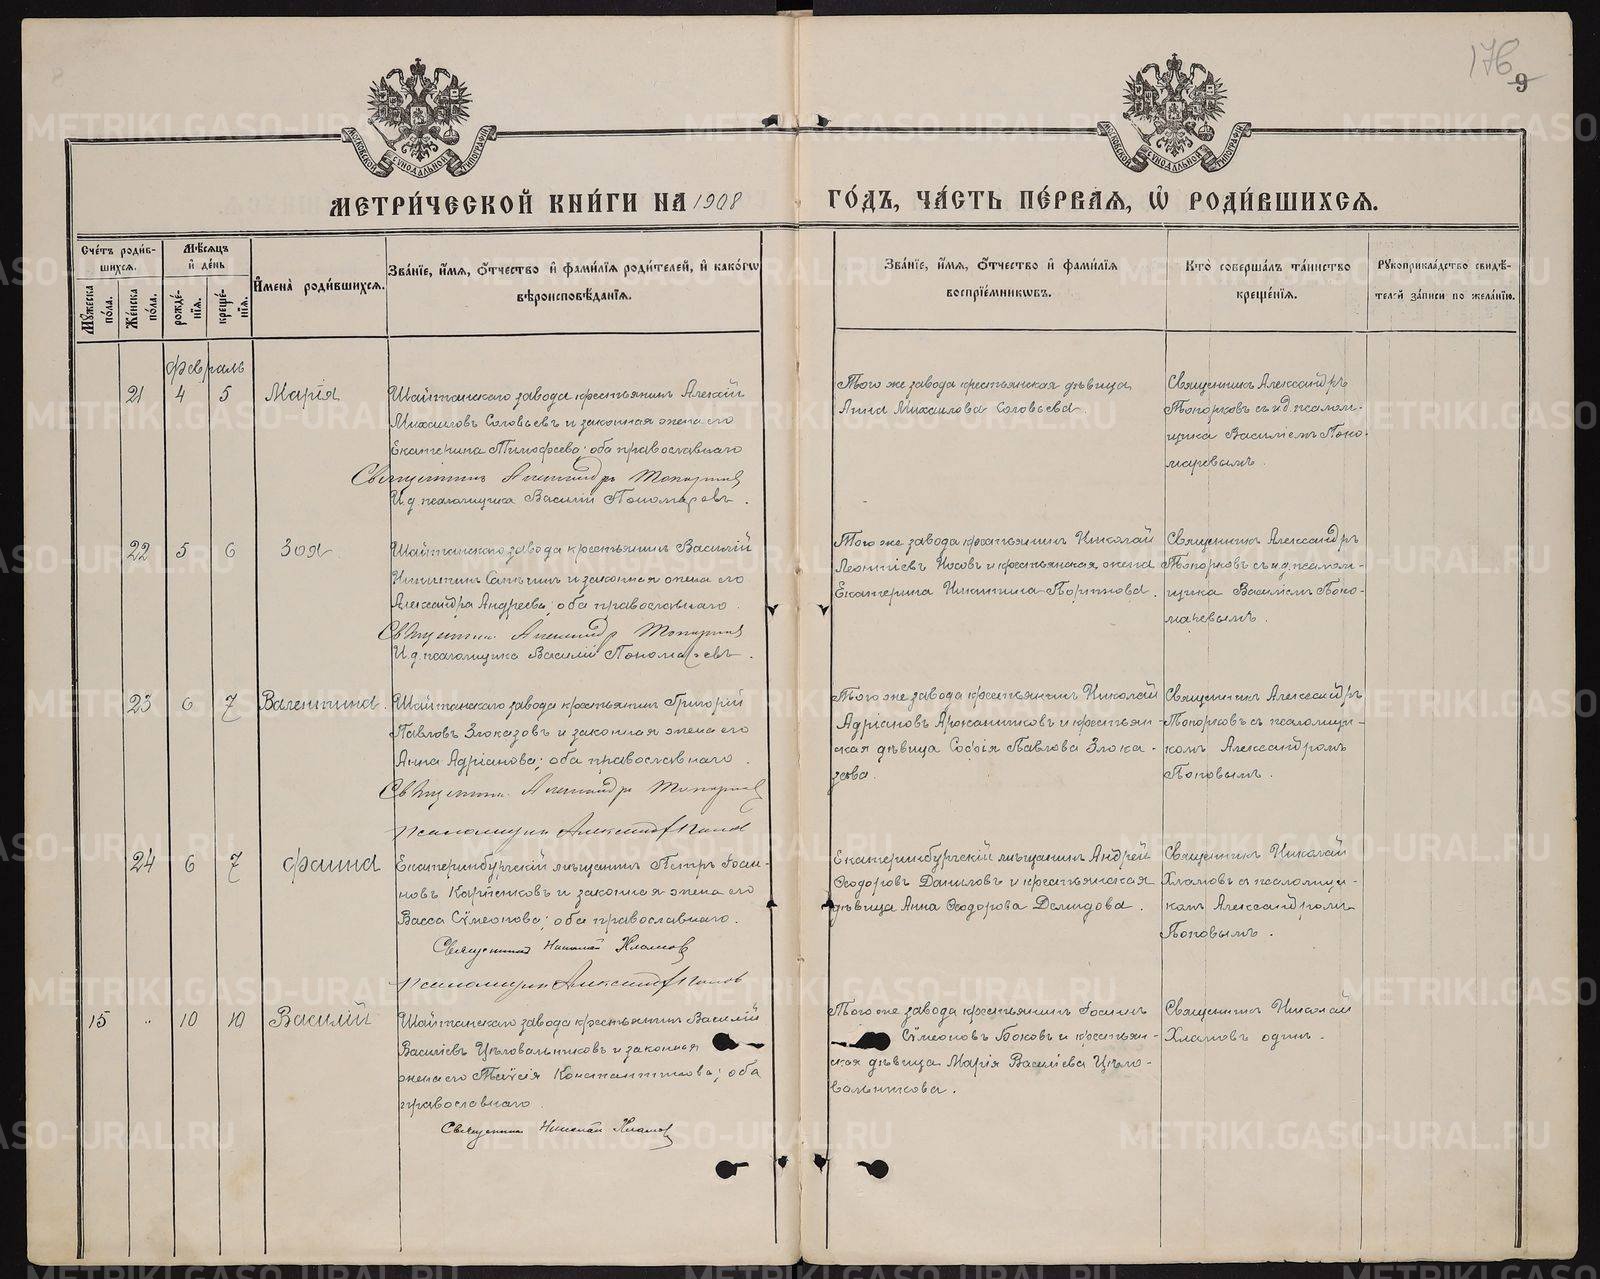 176
9
МОСКОВСКОЙ СѴНОДАЛЬНОЙ ТИПОГРАФІИ
МОСКОВСКОЙ СѴНОДАЛЬНОЙ ТИПОГРАФІИ
МЕТРИ́ЧЕСКОЙ КНИ́ГИ НА 1908 ГО́ДЪ, ЧА́СТЬ ПЕ́РВАѦ, Ѡ҆ РОДИ́ВШИХСѦ.
Сче́тъ роди́в-
шихсѧ.
Мѣ́сѧцъ
и҆ де́нь
Мꙋ́жеска
по́ла.
Же́нска
по́ла.
рожде́-
нїѧ.
креще́-
нїѧ.
И҆мена̀ роди́вшихсѧ.
Зва́нїе, и҆́мѧ, ѻ҆́тчество и҆ фами́лїѧ роди́телей, и҆ како́гѡ
вѣроисповѣ́данїѧ.
Зва́нїе, и҆́мѧ, ѻ҆́тчество и҆ фами́лїѧ
воспрїе́мникѡвъ.
Кто̀ соверша́лъ та́инство
креще́нїѧ.
Рꙋкоприкла́дство свидѣ́-
телей за́писи по жела́нїю.
Февраль
21 4 5 Марія
Шайтанскаго завода крестьянинъ Алексій
Михаиловъ Соловьевъ и законная жена его
Екатерина Тимофеева; оба православнаго
Священникъ Александръ Топорковъ
И.д. псаломщика Василій Пономаревъ.
Того же завода крестьянская дѣвица
Анна Михаилова Соловьева.
Священникъ Александръ
Топорковъ съ и.д. псалом-
щика Василіемъ Поно-
маревымъ.
22 5 6 Зоя
Шайтанскаго завода крестьянинъ Василій
Никитинъ и законная жена его
Александра Андреева; оба православнаго.
Священникъ Александръ Топорковъ
И.д. псаломщика Василій Пономаревъ.
Того же завода крестьянинъ Николай
Леонтіевъ Носовъ и крестьянская жена
Екатерина Никитина
Священникъ Александръ
Топорковъ съ и.д. псалом-
щика Василіемъ Поно-
маревымъ.
23 6 7 Валентина.
Шайтанскаго завода крестьянинъ Григорій
Павловъ Злоказовъ и законная жена его
Анна Адріанова; оба православнаго.
Священникъ Александръ Топорковъ
Псаломщикъ Александръ Поповъ
Того же завода крестьянинъ Николай
Адріановъ и крестьян-
ская дѣвица Софія Павлова Злока-
зова.
Священникъ Александръ
Топорковъ съ псаломщи-
комъ Александромъ
Поповымъ.
24 6 7 Фаина
Екатеринбургскій мѣщанинъ Петръ Іоан-
новъ и законная жена его
Васса Сѵмеонова; оба православнаго.
Священникъ Николай Хламовъ
Псаломщикъ Александръ Поповъ
Екатеринбургскій мѣщанинъ Андрей
Ѳеодоровъ Даниловъ и крестьянская
дѣвица Анна Ѳеодорова Демидова.
Священникъ Николай
Хламовъ съ псаломщи-
комъ Александромъ
Поповымъ.
15 " 10 10 Василій
Шайтанскаго завода крестьянинъ Василій
Васильевъ Цѣловальниковъ и законная
жена его Таисія Константинова; оба
православнаго.
Священникъ Николай Хламовъ
Того же завода крестьянинъ Іоаннъ
Сѵмеоновъ Боковъ и крестьян-
ская дѣвица Марія Васильева Цѣло-
вальникова.
Священникъ Николай
Хламовъ одинъ.
METRIKI.GASO-URAL.RU